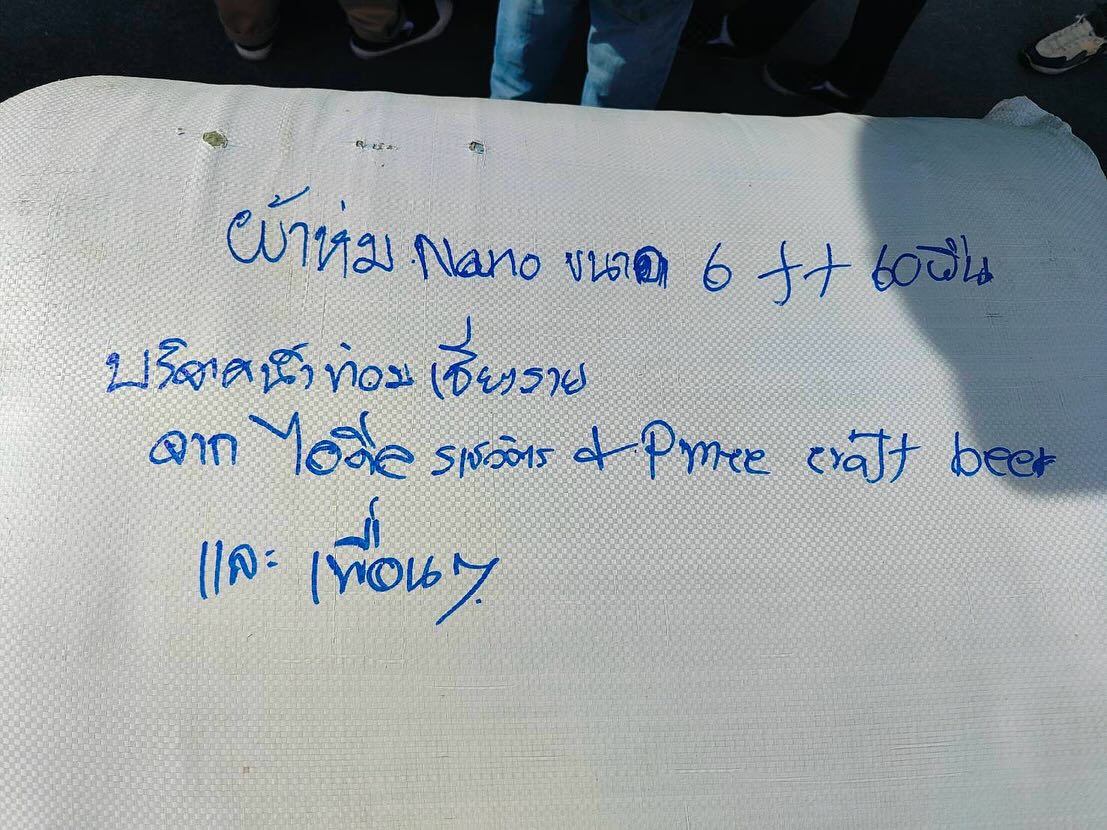 ผ้าห่ม Nano ขนาด 6 ft 60 ผืน
บริจาคน้ำท่วม เชียงราย
จาก ไอดีล ราชวัตร & craft beer
และ เพื่อนๆ